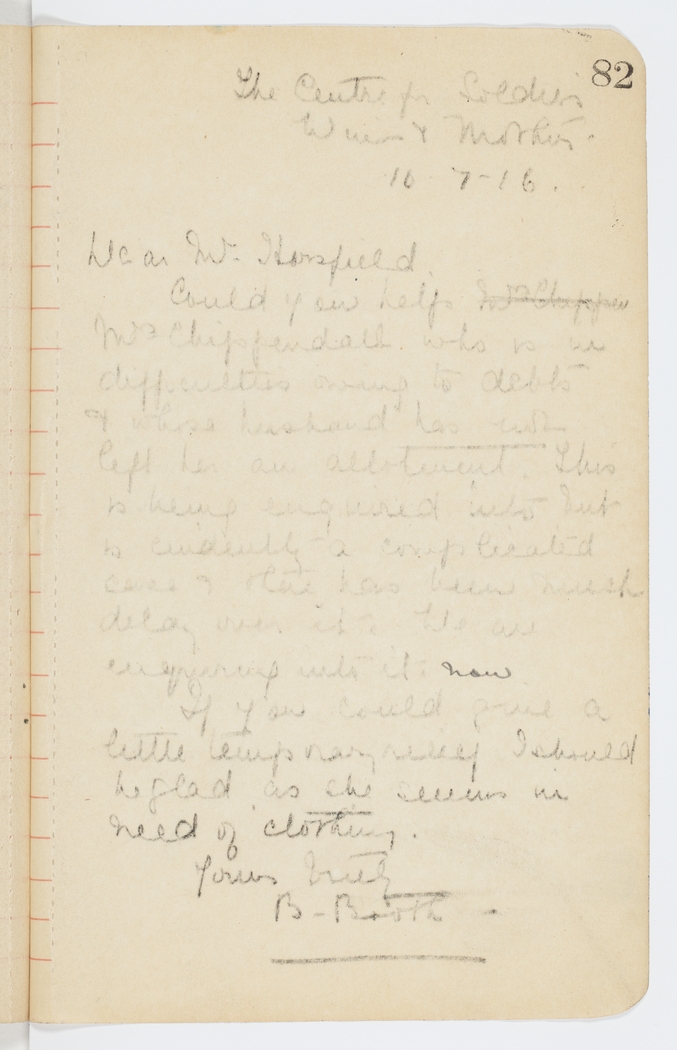 82
The Centre for Soldiers
Wives & Mothers.
10-7-16.
Dear Mr. Horsfield.
Could you help Mrs Chippen
Mrs Chippendall who is in
difficulties owing to debts
& whose husband has not
left her an allotment. This
is being enquired into but
is evidently a complicated
case & there has been much
delay over it. We are
enquiring into it now
If you could give a
little temporary relief I should
be glad as she seems in
need of clothing.
Yours truly
B-Booth-